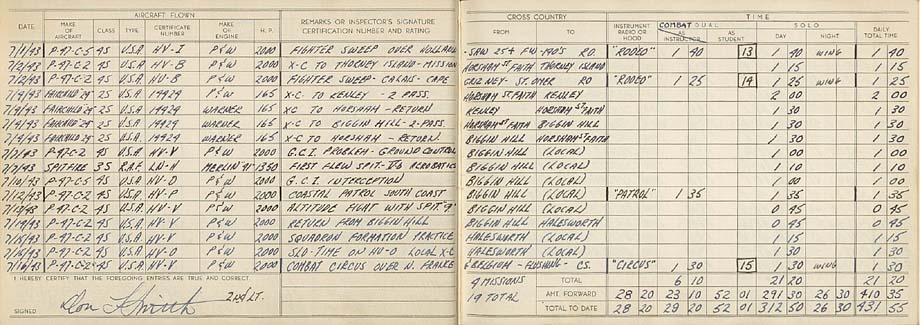 AIRCRAFT FLOWN
DATE MAKE OF AIRCRAFT CLASS TYPE CERTIFICATE NUMBER MAKE OF ENGINE H. P. REMARKS OR INSPECTOR'S SIGNATURE CERTIFICATION NUMBER AND RATING
7/1/43 P-47-C-5 4S U.S.A. HV-I P&W 2000 FIGHTER SWEEP OVER HOLLAND
7/2/43 P-47-C-2 4S U.S.A. HV-B P&W 2000 X-C TO THORNEY ISLAND-MISSION
7/2/43 P-47-C-2 4S U.S.A. HV-B P&W 2000 FIGHTER SWEEP-CALAIS-CAPE
7/4/43 FAIRCHILD 2S U.S.A. 19924 165 X-C TO KENLEY - 2 PASS.
7/4/43 FAIRCHILD 2S U.S.A. 19924 WARNER 165 XC TO HORSHAM - RETURN
7/4/43 FAIRCHILD 2S U.S.A. 19924 WARNER 165 X-C TO BIGGIN HILL-2-PASS.
7/4/43 FAIRCHILD 2S U.S.A. 19924 WARNER 165 X-C TO HORSHAM - RETURN.
P-47-C-2 4S U.S.A. HV-V P&W 2000 G.C.I. PROBLEM-GROUND CONTROL
SPITFIRE 3S R.A.F. LN-H MERLIN 1350 FIRST FLEW SPIT- ACROBATICS
7/10/43 P-47-C-5 4S U.S.A. HV-D P&W 2000 G.C.I. INTERCEPTION
7/12/43 P-47-C-2 4S U.S.A. HV-P P&W 2000 COASTAL PATROL SOUTH COAST
P-47-C-2 4S U.S.A. HV-V P&W 2000 ALTITUDE FIGHT WITH SPIT "9"
P-47-C-2 4S U.S.A. HV-V P&W 2000 RETURN FROM BIGGIN HILL
P-47-C-2 4S U.S.A. HV-V P&W 2000 SQUADRON FORMATION PRACTICE
P-47-C-2 4S U.S.A. HV-O P&W 2000 SLO-TIME ON HV-O LOCAL X-C
P-47-C-2 4S U.S.A. HV-V P&W 2000 COMBAT CIRCUS OVER N. FRANCE
I HEREBY CERTIFY THAT THE FOREGOING ENTRIES ARE TRUE AND CORRECT.
SIGNED Don Smith 2nd LT.
CROSS COUNTRY TIME
FROM TO INSTRUMENT RADIO OR HOOD COMBAT DUAL AS INSTRUCTOR AS STUDENT SOLO DAY NIGHT DAILY TOTAL TIME
-SAW 25+ FW-190'S RO. "RODEO" 1 40 13 1 40 WING 1 40
HORSHAM ST FAITH THORNEY ISLAND 1 15 1 15
GRIZ NEZ-ST. OMER RO "RODEO" 1 25 14 1 25 WING 1 25
HORSHAM ST FAITH KENLEY 2 00 2 00
KENLEY HORSHAM ST FAITH 1 30 1 30
HORSHAM ST FAITH BIGGIN HILL 1 30 1 30
BIGGIN HILL HORSHAM ST FAITH 1 30 1 30
BIGGIN HILL (LOCAL) 1 00 1 00
BIGGIN HILL (LOCAL) 1 10 1 10
BIGGIN HILL (LOCAL) 1 00 1 00
BIGGIN HILL (LOCAL) "PATROL" 1 35 1 35 1 35
BIGGIN HILL (LOCAL) 0 45 0 45
BIGGIN HILL HALESWORTH 0 45 0 45
HALESWORTH (LOCAL) 1 15 1 15
HALESWORTH (LOCAL) 1 30 1 30
& BELGIUM - FLUSHING - CS. "CIRCUS" 1 30 15 1 30 WING 1 30
4 MISSIONS TOTAL 6 10 21 20 21 20
19 TOTAL AMT. FORWARD 28 20 23 10 52 01 291 30 26 30 410 35
TOTAL TO DATE 28 20 29 20 52 01 312 50 26 30 431 55